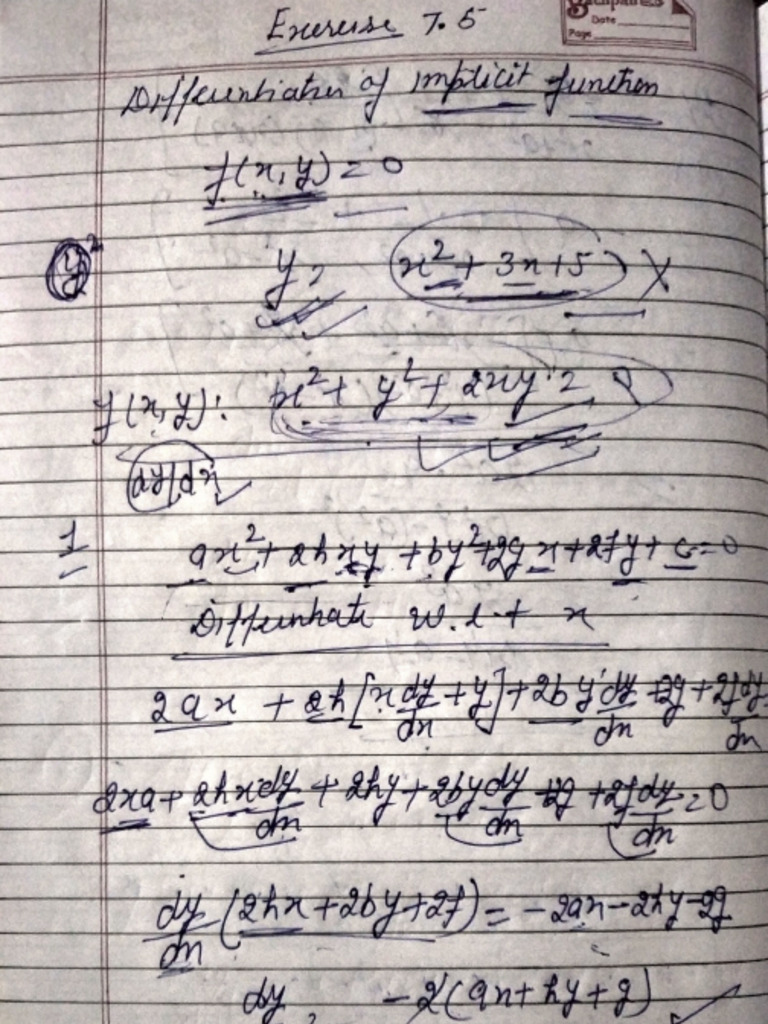 Exercise 7.5
Date
Page
Differentiation of implicit function
f(x, y) = 0
y = (x² + 3x + 5) X
f(x, y) : x² + y² + 2xy = 0
dy/dx
1 ax² + 2hxy + by² + 2gx + 2fy + c = 0
Differentiate w.r.t x
2ax + 2h[x dy/dx + y] + 2by dy/dx + 2g + 2f dy/dx
2xa + 2hx dy/dx + 2hy + 2by dy/dx + 2g + 2f dy/dx = 0
dy/dx (2hx + 2by + 2f) = -2ax - 2hy - 2g
dy -2(ax + hy + g)